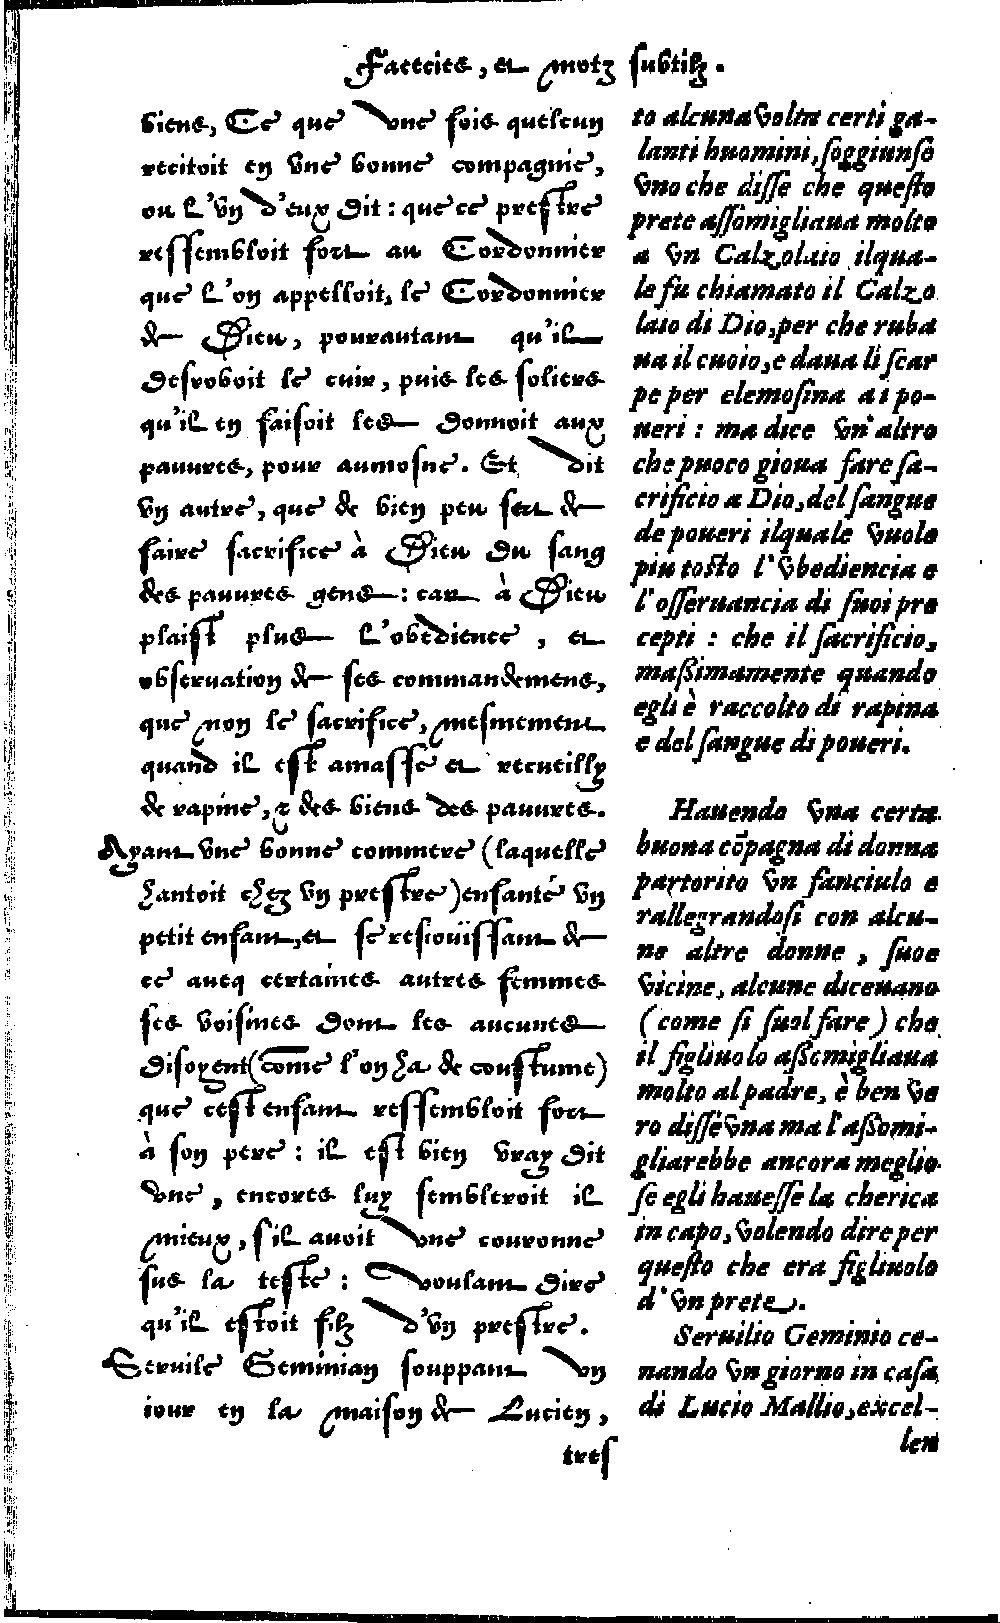 Facecies, et motz subtilz.
biens, Ce que vne fois quelcun
recitoit en vne bonne compagnie,
ou l'vn d'eux dit: que ce prestre
ressembloit fort au Cordonnier
que l'on appelloit, le Cordonnier
de Dieu, pourautant qu'il
desroboit le cuir, puis les soliers
qu'il en faisoit les donnoit aux
pauures, pour aumosne. Et dit
vn autre, que de bien peu sert de
faire sacrifice à Dieu du sang
des pauures gens: car à Dieu
plaist plus l'obedience, et
obseruation de ses commandemens,
que non le sacrifice, mesmement
quand il est amassé et recueilly
de rapine, & des biens des pauures.
Ayant vne bonne commere (laquelle
hantoit chez vn prestre) enfanté vn
petit enfant, et se resiouïssant de
ce aueq certaines autres femmes
ses voisines dont les aucunes
disoyent (come l'on ha de coustume)
que cest enfant ressembloit fort
à son pere: il est bien vray dit
vne, encores luy sembleroit il
mieux, s'il auoit vne couronne
sus la teste: voulant dire
qu'il estoit filz d'vn prestre.
Seruile Geminian souppant vn
iour en la maison de Lucien,
tres
to alcuna volta certi ga-
lanti huomini, soggiunse
vno che disse che questo
prete assomigliaua molto
a vn Calzolaio ilqua-
le fu chiamato il Calzo
laio di Dio, per che ruba
ua il cuoio, e daua li scar
pe per elemosina a i po-
ueri: ma dice vn'altro
che puoco gioua fare sa-
crificio a Dio, del sangue
de poueri ilquale vuole
piu tosto l'vbediencia e
l'osseruancia di suoi pre
cepti: che il sacrificio,
maßimamente quando
egli è raccolto di rapina
e del sangue di poueri.
Hauendo vna certa
buona cõpagna di donna
partorito vn fanciulo e
rallegrandosi con alcu-
ne altre donne, suoe
vicine, alcune diceuano
(come si suol fare) che
il figliuolo aßemigliaua
molto al padre, è ben ve
ro disse vna ma l'aßomi-
gliarebbe ancora meglio
se egli hauesse la cherica
in capo, volendo dire per
questo che era figliuolo
d'vn prete.
Seruilio Geminio ce-
nando vn giorno in casa
di Lucio Mallio, excel-
len